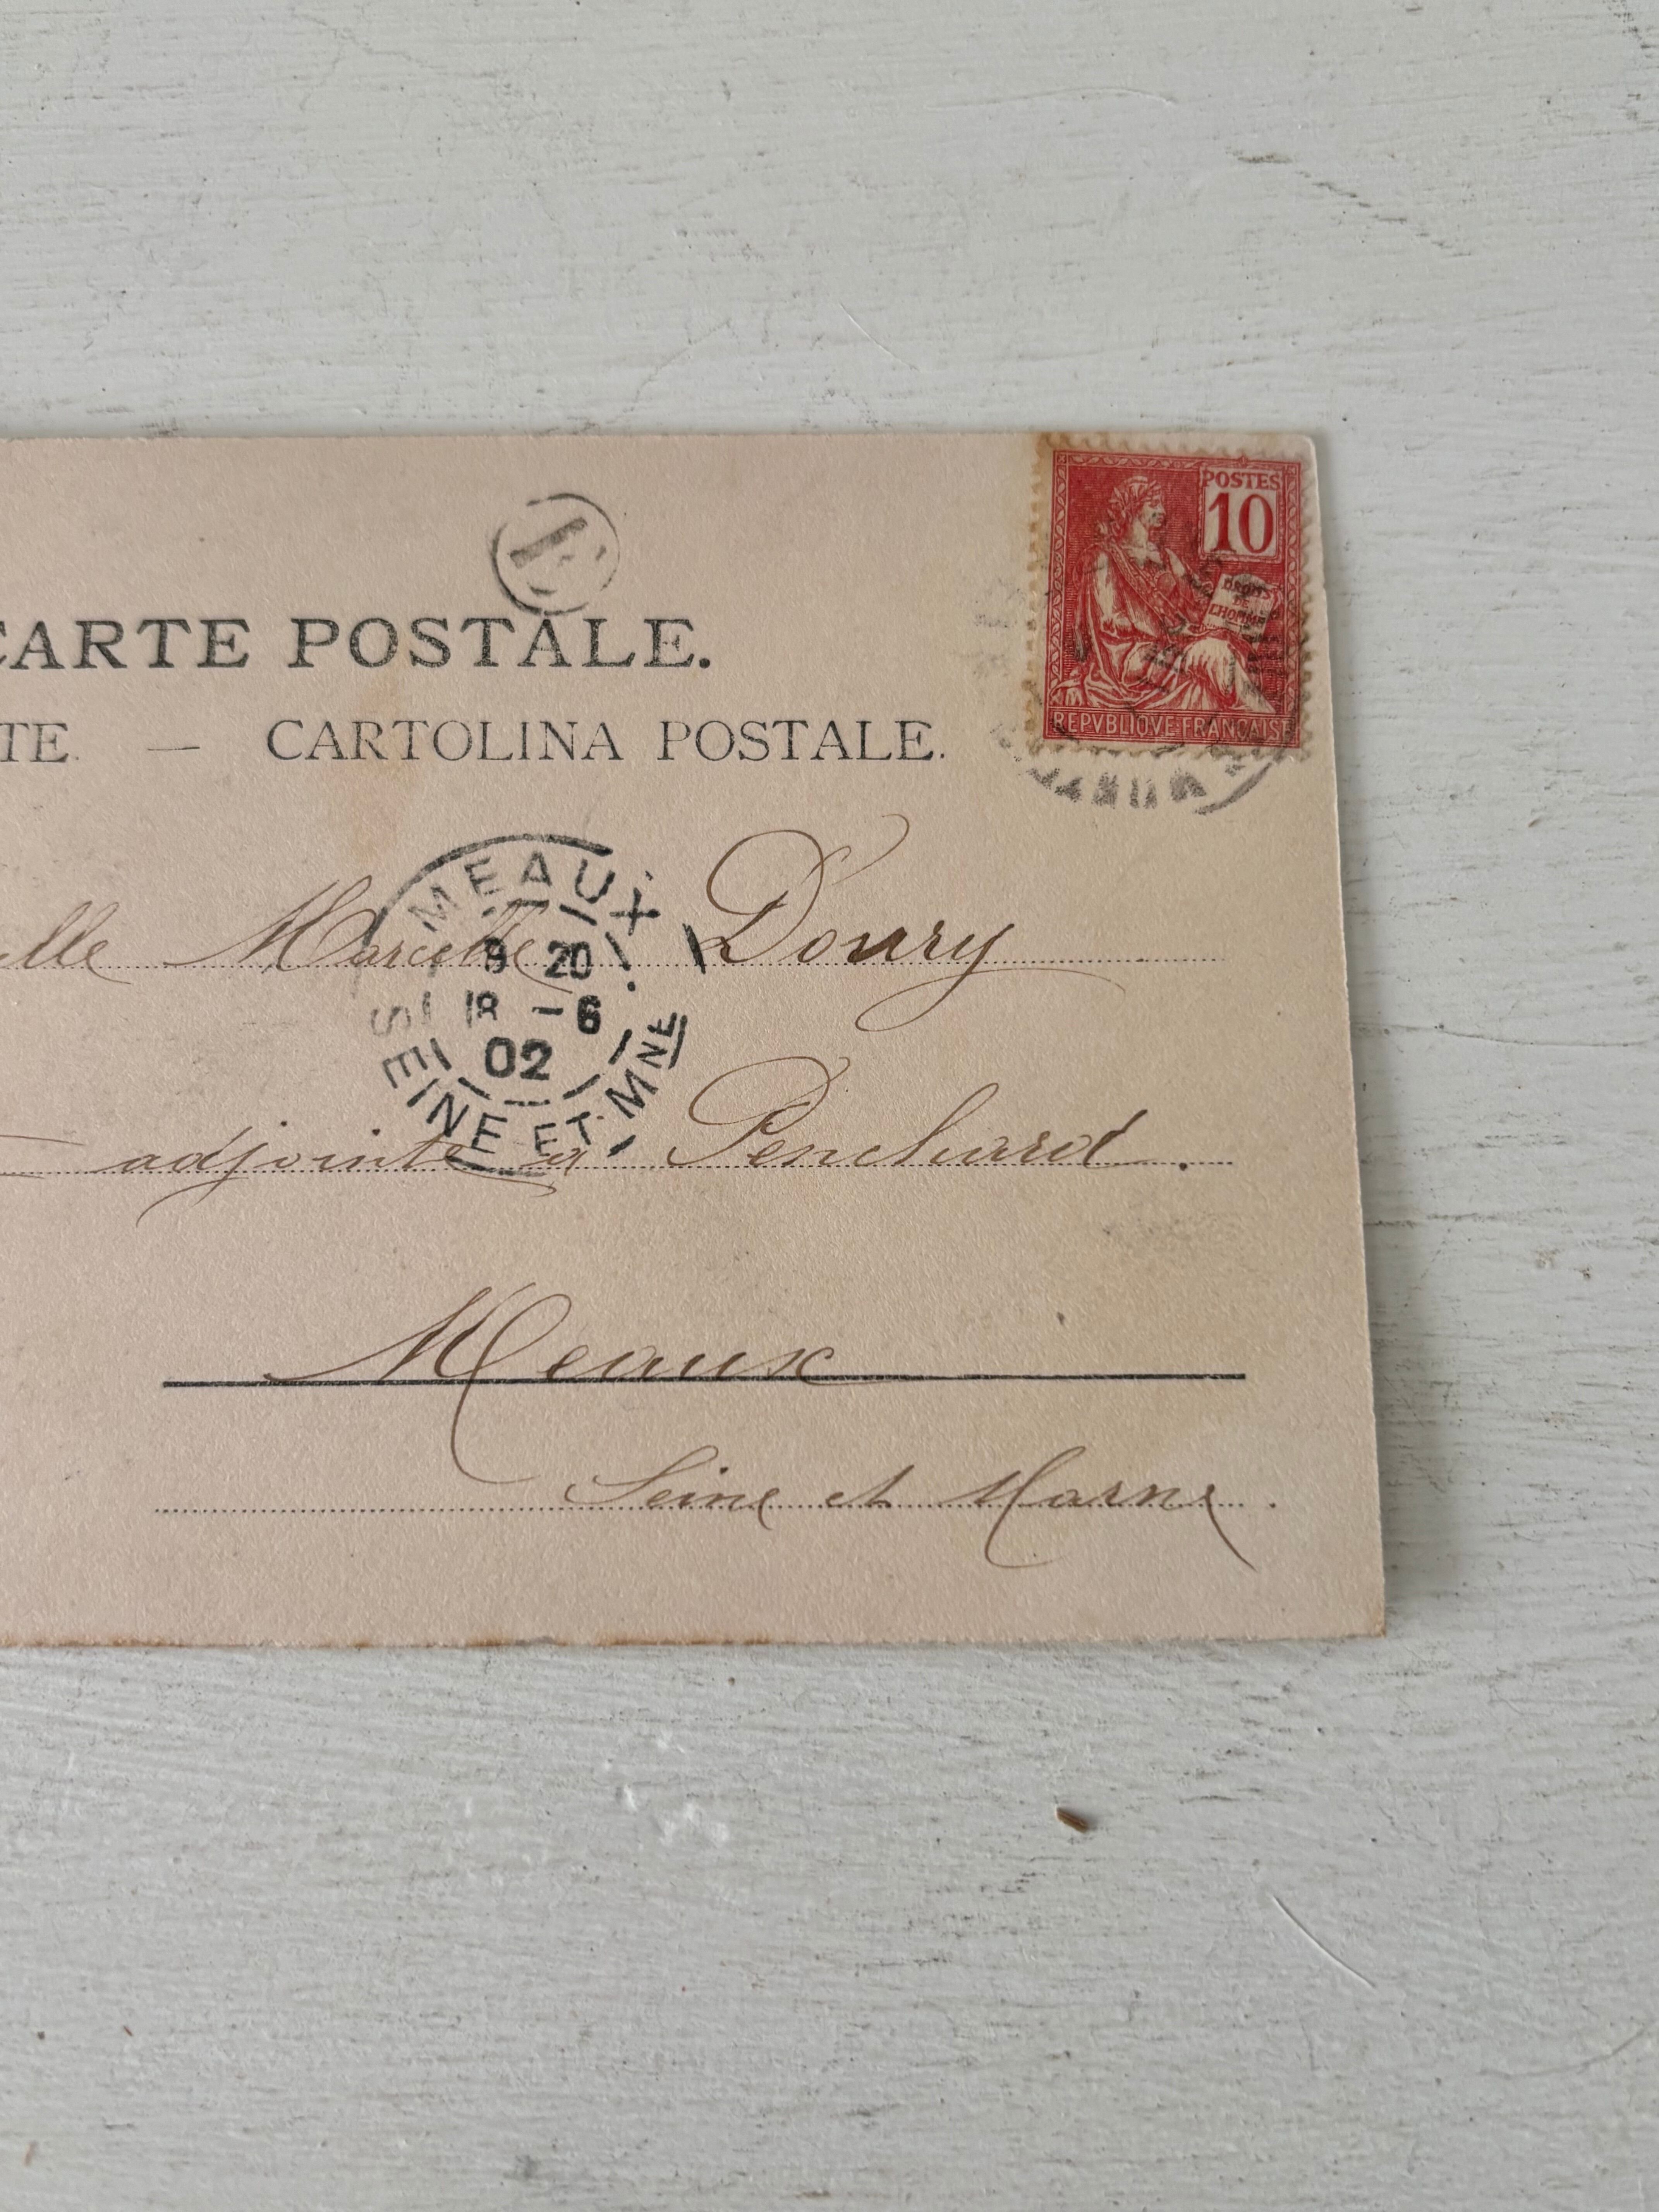 CARTE POSTALE.
TE. — CARTOLINA POSTALE.
POSTES
10
DROITS
DE
L'HOMME
REPVBLIQVE FRANCAISE
MEAUX
9 20
18 -6
02
SEINE ET MNE
elle Marcelle Doury
adjointe à Penchard.
Meaux
Seine et Marne.